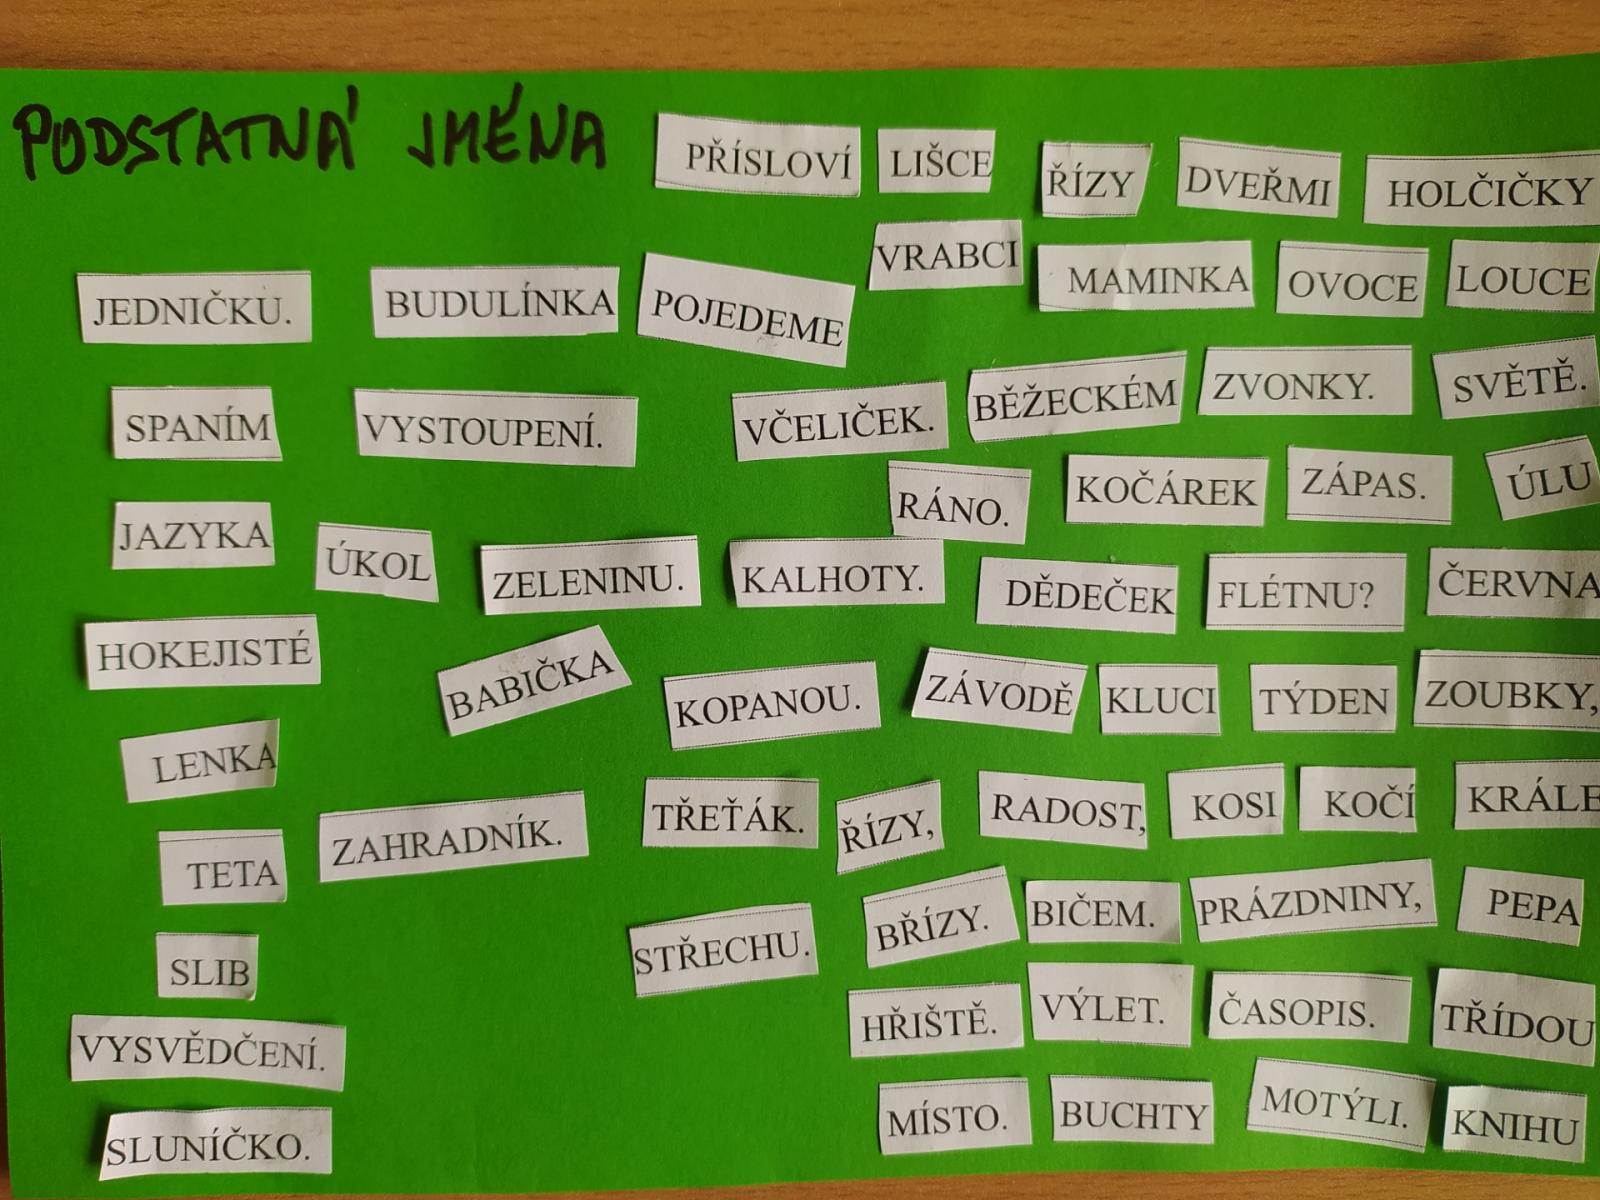 PODSTATNÁ JMÉNA
PŘÍSLOVÍ LIŠCE ŘÍZY DVEŘMI HOLČIČKY
VRABCI MAMINKA OVOCE LOUCE
JEDNIČKU. BUDULÍNKA POJEDEME
SPANÍM VYSTOUPENÍ. VČELIČEK. BĚŽECKÉM ZVONKY. SVĚTĚ.
RÁNO. KOČÁREK ZÁPAS. ÚLU
JAZYKA ÚKOL ZELENINU. KALHOTY. DĚDEČEK FLÉTNU? ČERVNA
HOKEJISTÉ BABIČKA KOPANOU. ZÁVODĚ KLUCI TÝDEN ZOUBKY,
LENKA
ZAHRADNÍK. TŘEŤÁK. ŘÍZY, RADOST, KOSI KOČÍ KRÁLE
TETA
STŘECHU. BŘÍZY. BIČEM. PRÁZDNINY, PEPA
SLIB
HŘIŠTĚ. VÝLET. ČASOPIS. TŘÍDOU
VYSVĚDČENÍ.
MÍSTO. BUCHTY MOTÝLI. KNIHU
SLUNÍČKO.